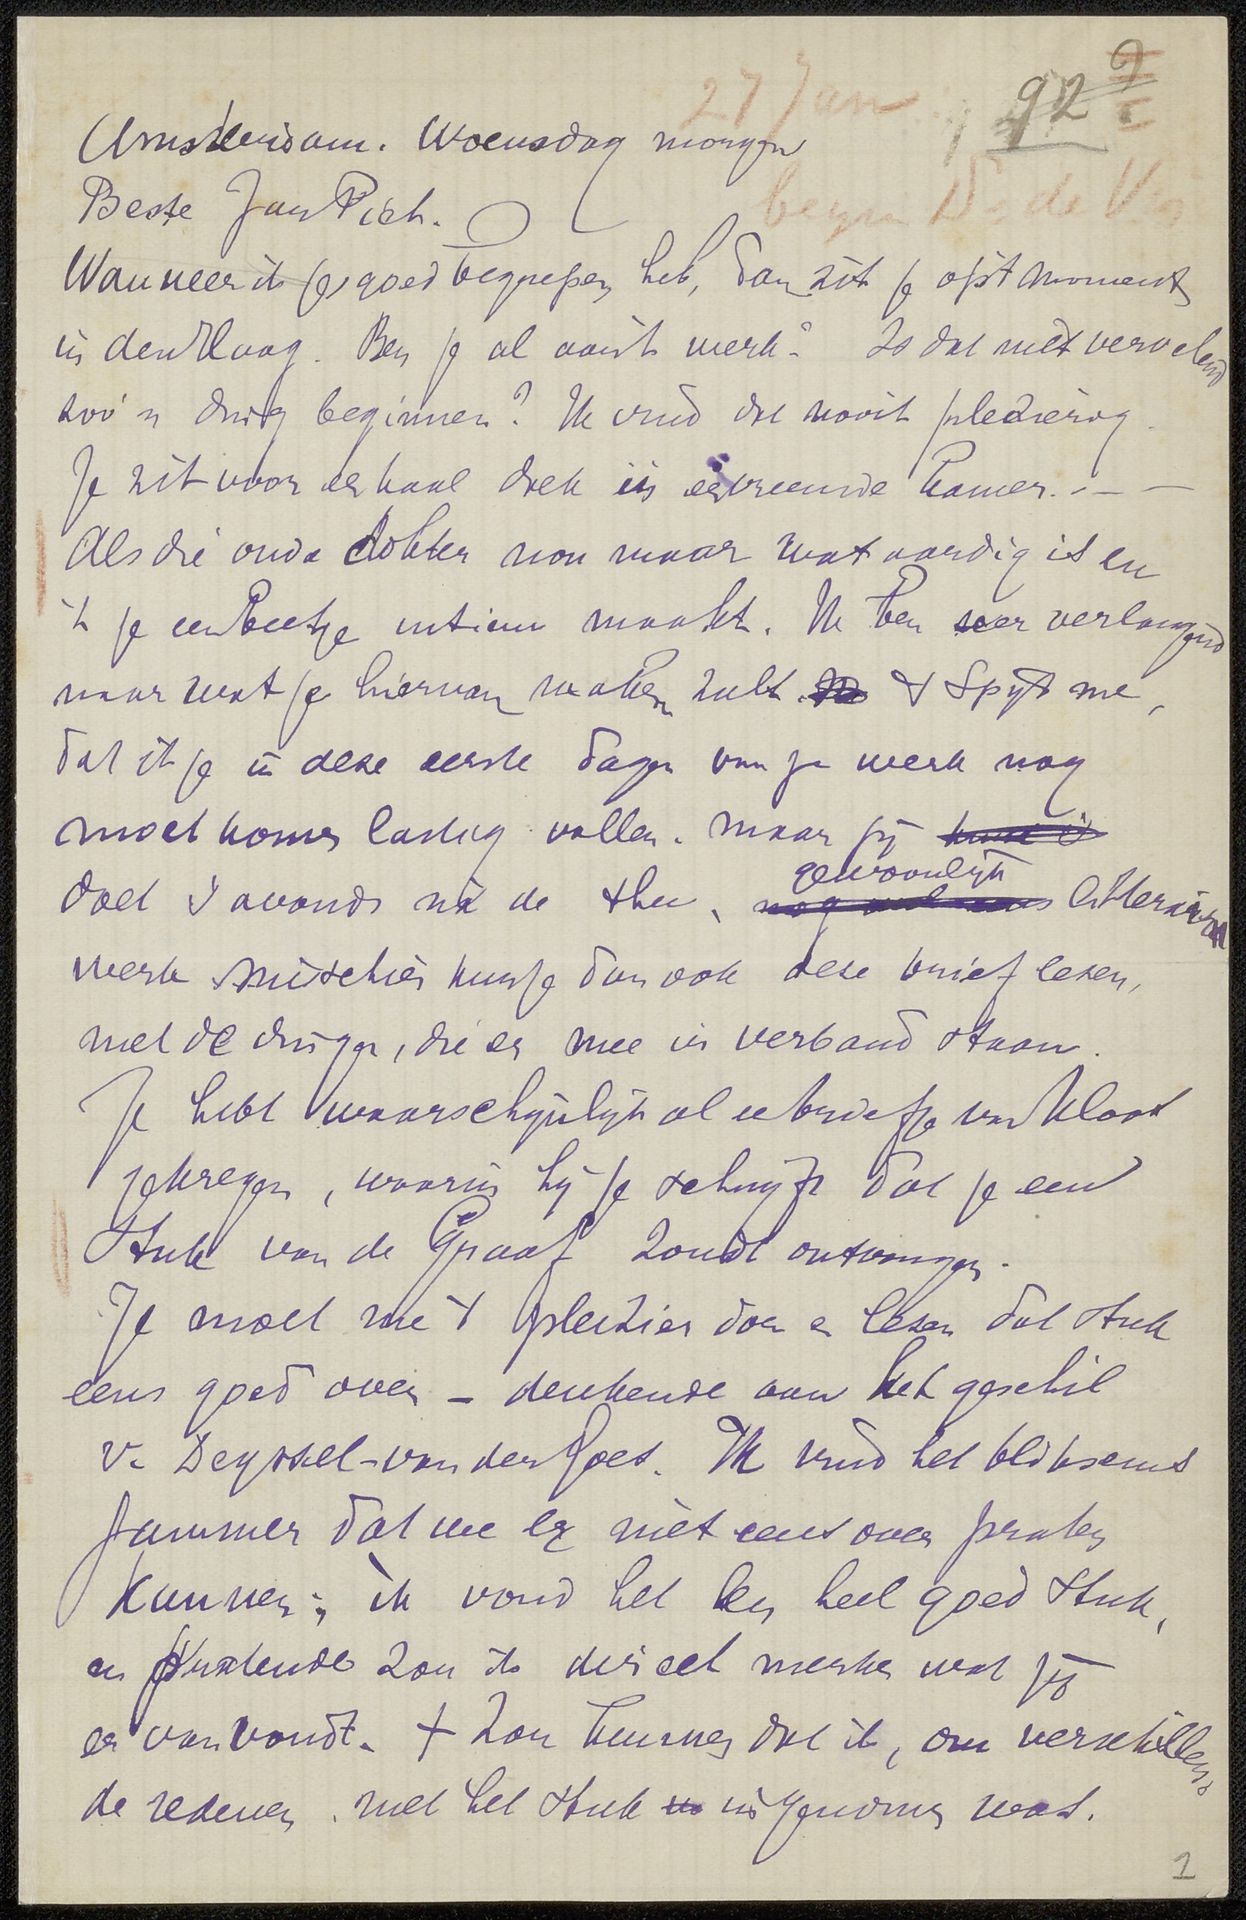 27 Jan 92
Amsterdam. Woensdag morgen
begin de
Beste Jan Piet.
Wanneer ik je goed begrepen heb, dan zit je op 't moment
in den Haag. Ben je al aan 't werk? Is dat niet vervelend
zoo'n ding beginnen? Ik vind dat nooit pleizierig.
Je zit voor een kaal doek in een vreemde kamer. . — —
Als die oude dokter nou maar wat aardig is en
't je een beetje intiem maakt. Ik ben zeer verlangend
naar wat je hiervan maken zult. 't Spijt me,
dat ik je in deze eerste dagen van je werk nog
moet komen lastig vallen. maar jij
doet 's avonds na de thee, gewoonlijk litterair
werk misschien kun je dan ook deze brief lezen,
met de dingen, die er mee in verband staan.
Je hebt waarschijnlijk al een briefje van Kloos
gekregen, waarin hij je schrijft dat je een
stuk van de Graaf zoudt ontvangen.
Je moet me 't pleizier doen en lezen dat stuk
eens goed over – denkende aan het geschil
v. Deyssel-van der Goes. Ik vind het bliksems
jammer dat we er niet eens over praten
kunnen; ik vond het een heel goed stuk,
en pratende zou ik direct merken wat jij
er van vondt. 't Zou kunnen dat ik, om verschillen-
de redenen. met het stuk ingenomen was.
1